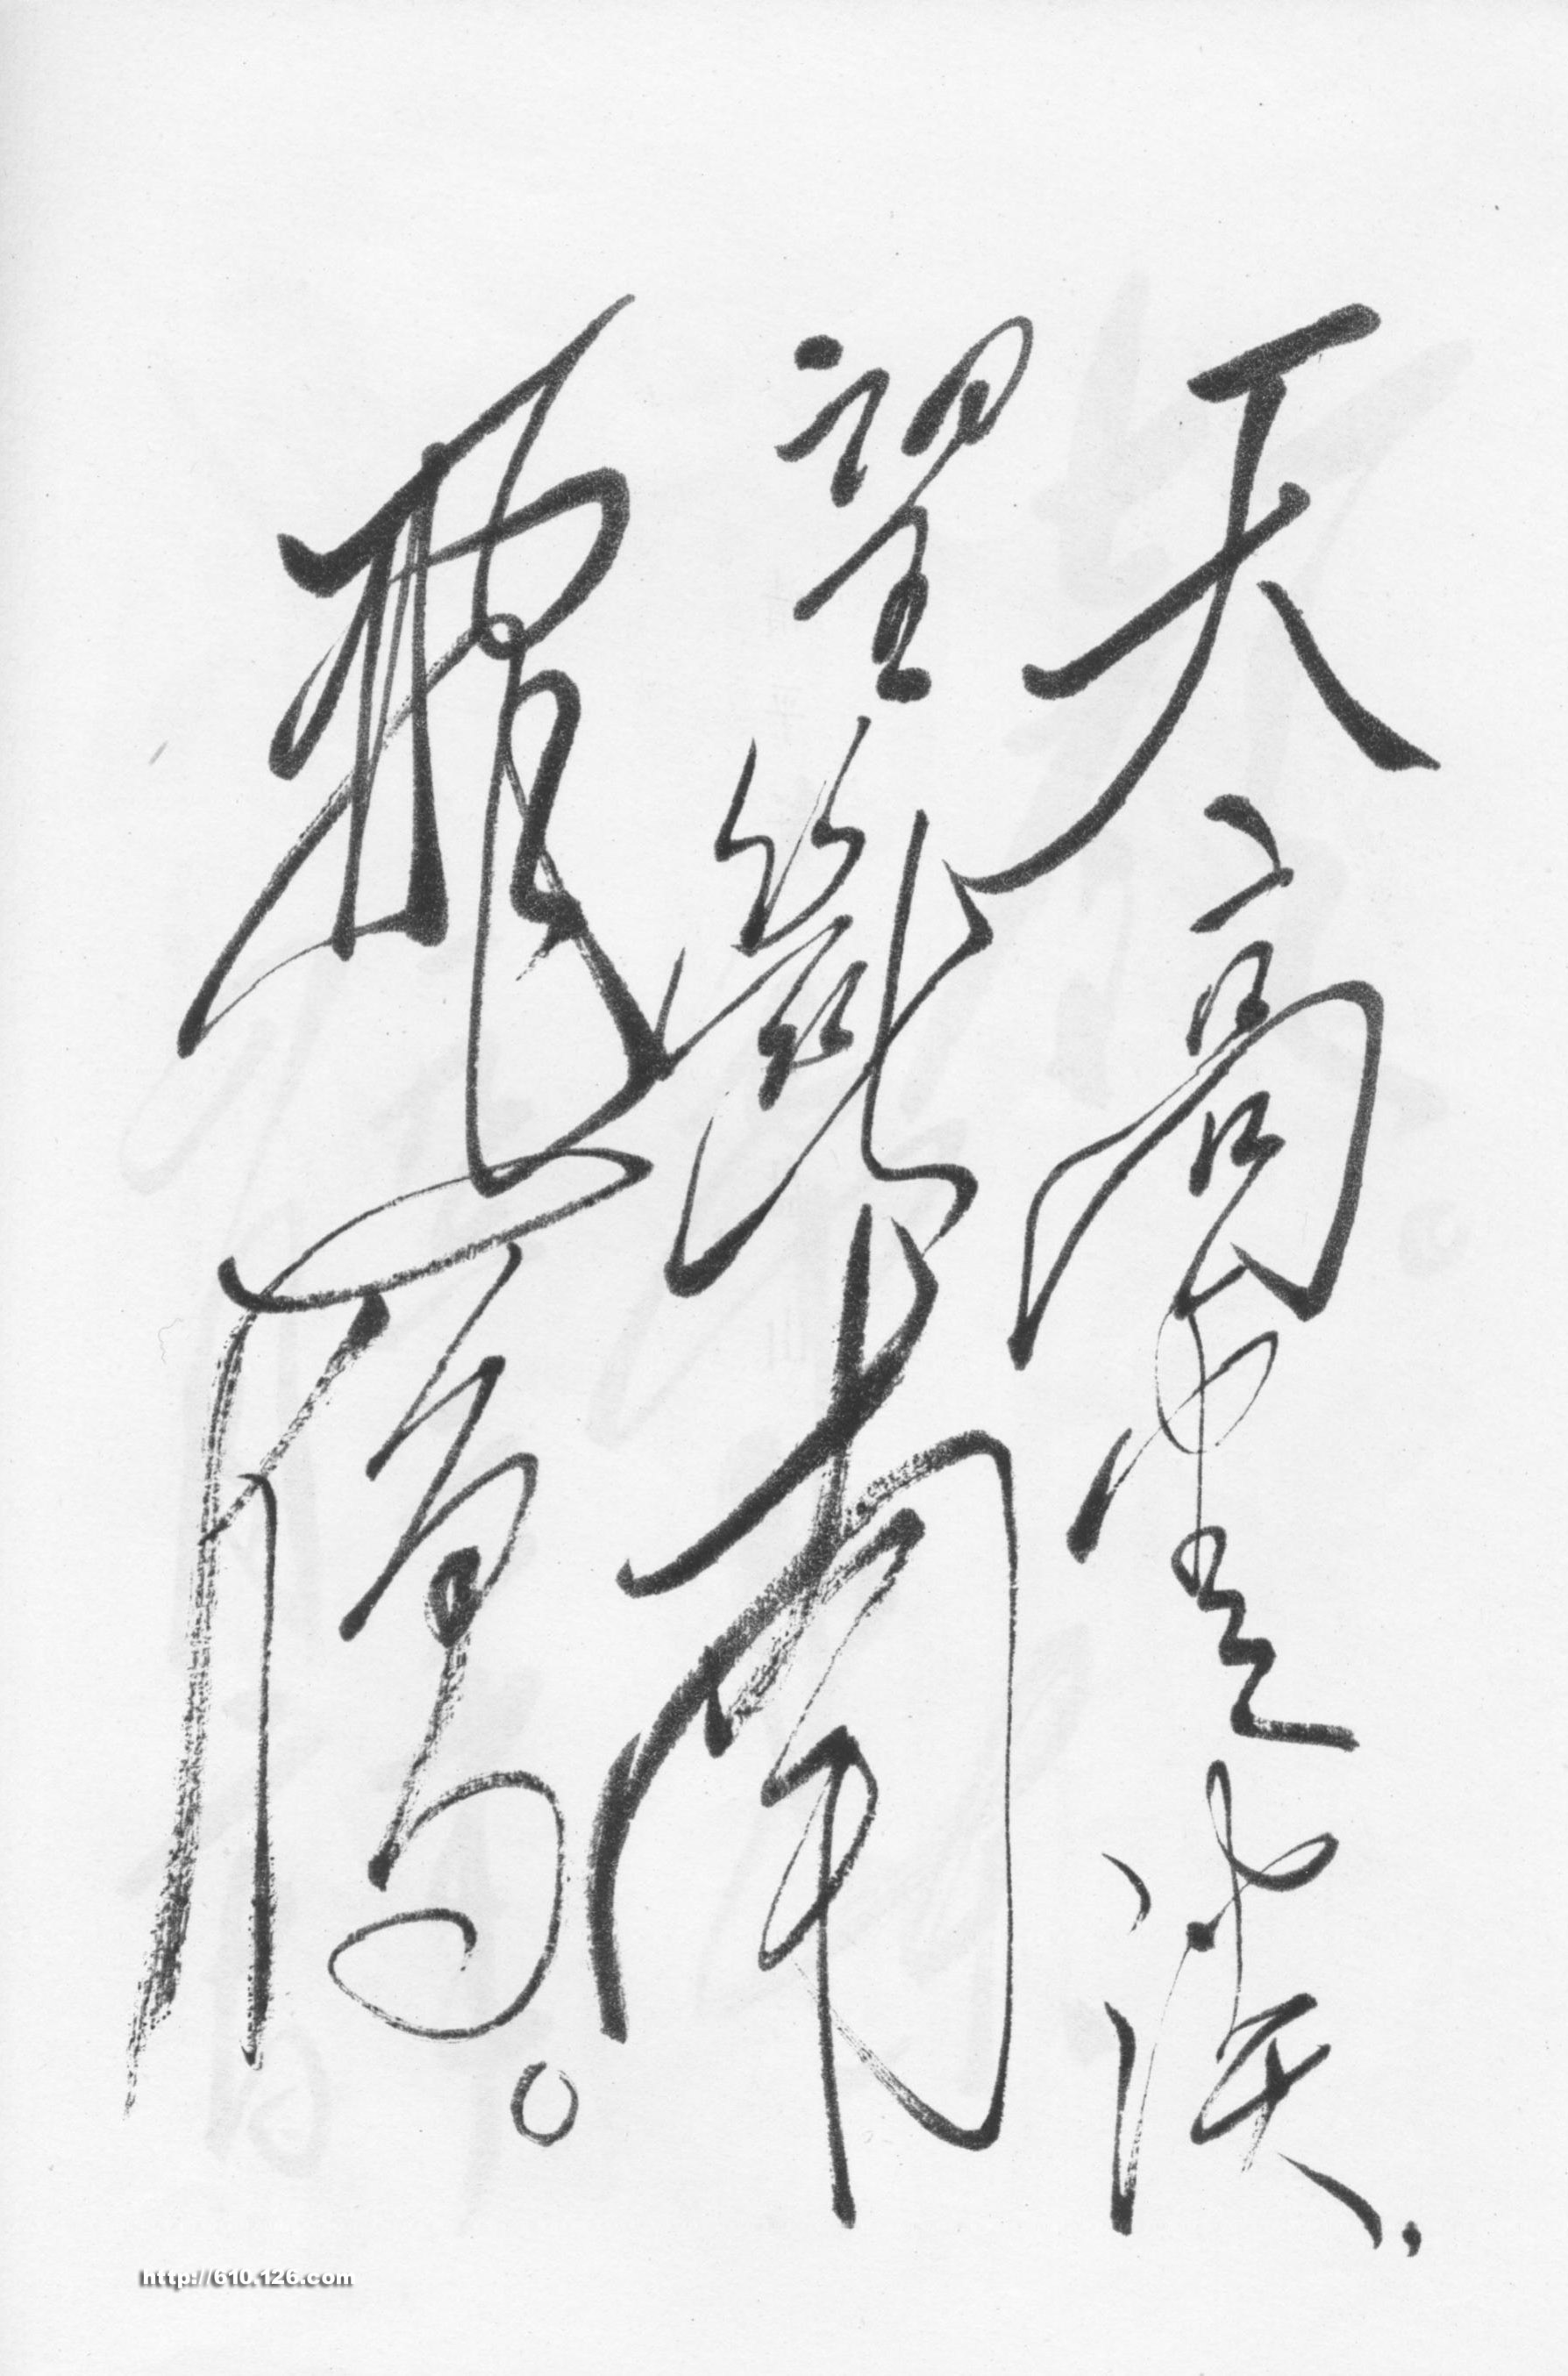 天高雲淡，
望斷南
飛雁。
http://610.126.com